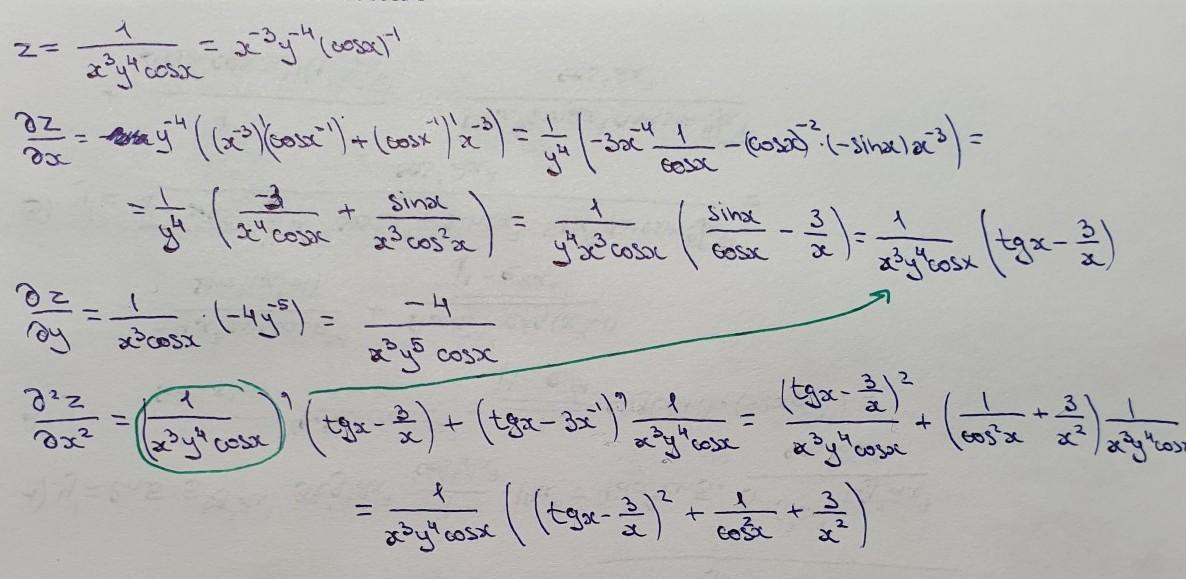 z = 1/(x³y⁴cosx) = x⁻³y⁻⁴(cosx)⁻¹
∂z/∂x = y⁻⁴((x⁻³)'(cosx⁻¹) + (cosx⁻¹)'x⁻³) = 1/y⁴ (-3x⁻⁴ 1/cosx - (cosx)⁻²·(-sinx)x⁻³) =
= 1/y⁴ (-3/(x⁴cosx) + sinx/(x³cos²x)) = 1/(y⁴x³cosx) (sinx/cosx - 3/x) = 1/(x³y⁴cosx) (tgx - 3/x)
∂z/∂y = 1/(x³cosx) · (-4y⁻⁵) = -4/(x³y⁵cosx)
∂²z/∂x² = (1/(x³y⁴cosx))' (tgx - 3/x) + (tgx - 3x⁻¹)' 1/(x³y⁴cosx) = (tgx - 3/x)²/(x³y⁴cosx) + (1/cos²x + 3/x²) 1/(x³y⁴cosx
= 1/(x³y⁴cosx) ((tgx - 3/x)² + 1/cos²x + 3/x²)